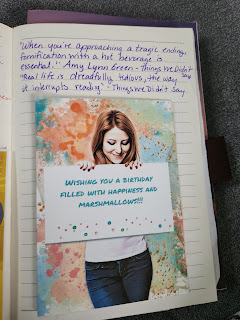 "When you're approaching a tragic ending,
fornification with a hot beverage is
essential." Amy Lynn Green - Things We Didn't
Say
"Real life is dreadfully tedious, the way
it interrupts reading." - Things We Didn't Say
WISHING YOU A BIRTHDAY
FILLED WITH HAPPINESS AND
MARSHMALLOWS!!!